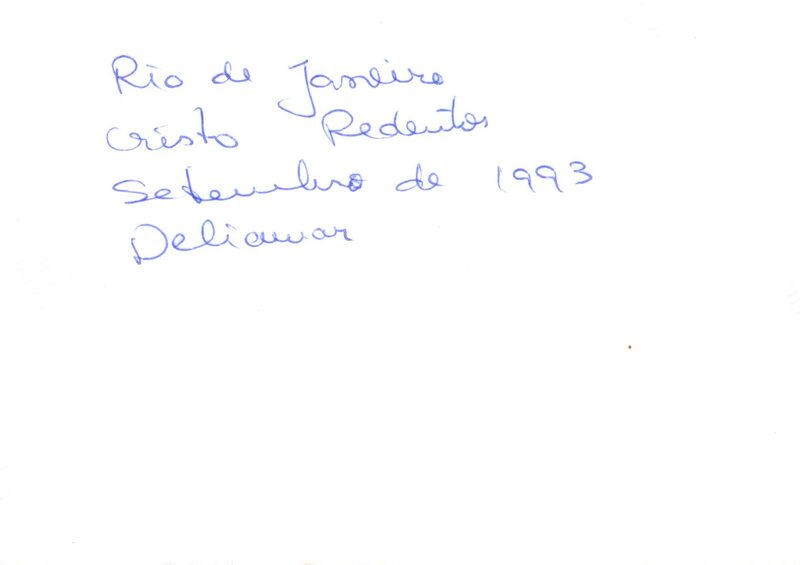 Rio de Janeiro
Cristo Redentor
Setembro de 1993
Deliamar